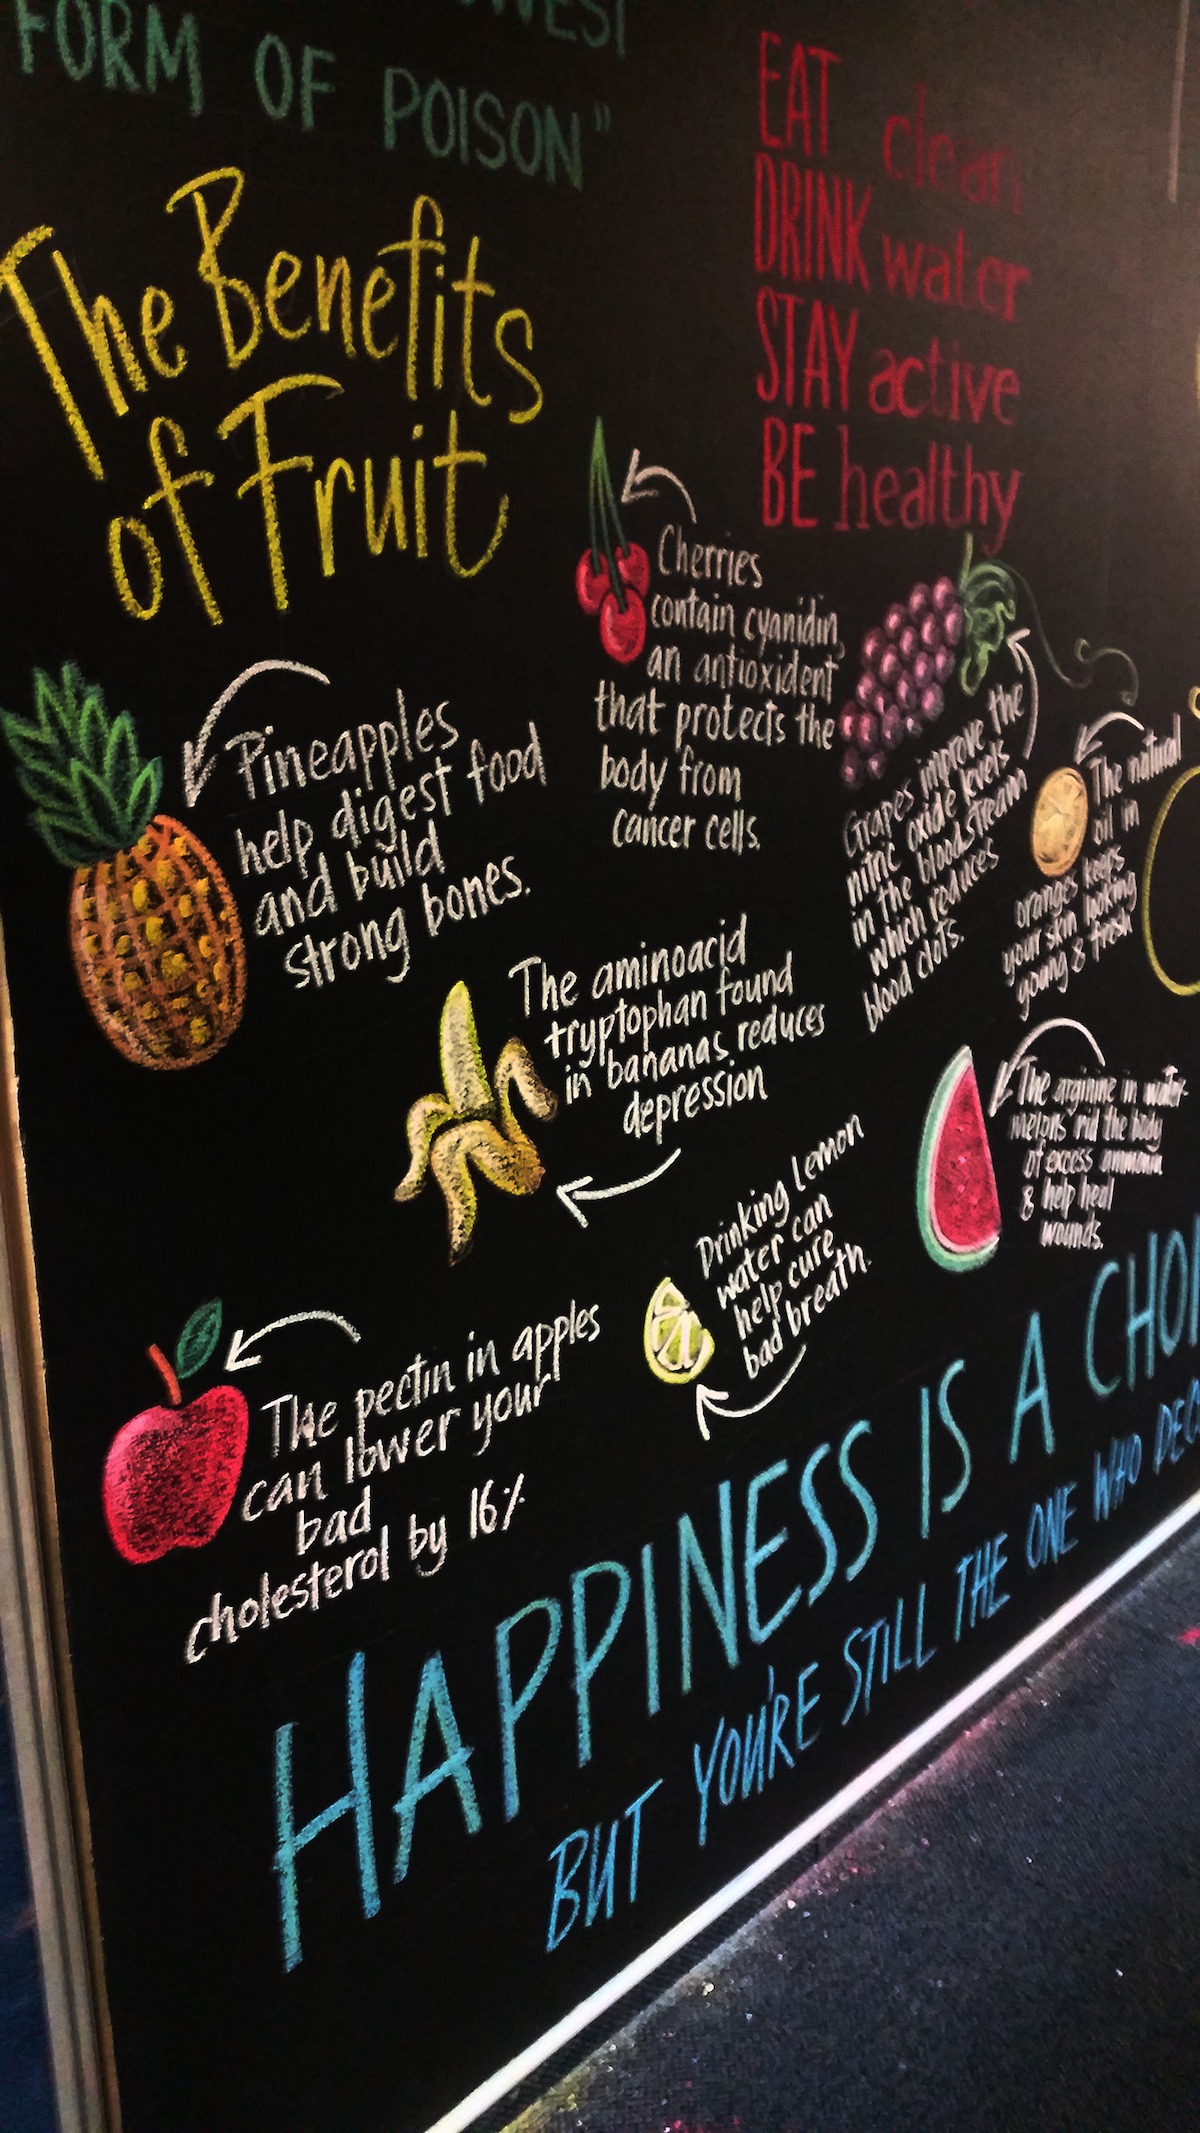 FORM OF POISON"
The Benefits
of Fruit
EAT clean
DRINK water
STAY active
BE healthy
Cherries
contain cyanidin,
an antioxident
that protects the
body from
cancer cells.
Pineapples
help digest food
and build
strong bones.
Grapes improve the
nitric oxide levels
in the blood stream
which reduces
blood clots.
The natural
oil in
oranges keeps
your skin looking
young & fresh
The aminoacid
tryptophan found
in bananas reduces
depression
The arginine in water-
melons rid the body
of excess ammonia
& help heal
wounds.
Drinking Lemon
water can
help cure
bad breath.
The pectin in apples
can lower your
bad
cholesterol by 16%
HAPPINESS IS A
BUT YOU'RE STILL THE ONE WHO